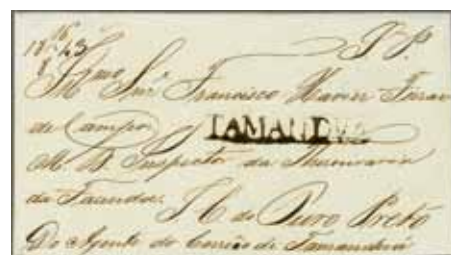 S. P.
Illmo Snr. Francisco Xavier
de Campos TAMANDUA
M. D. Inspector da Thesouraria
da Fazenda.
de Ouro Preto
Do Agente do Correio de Tamanduá